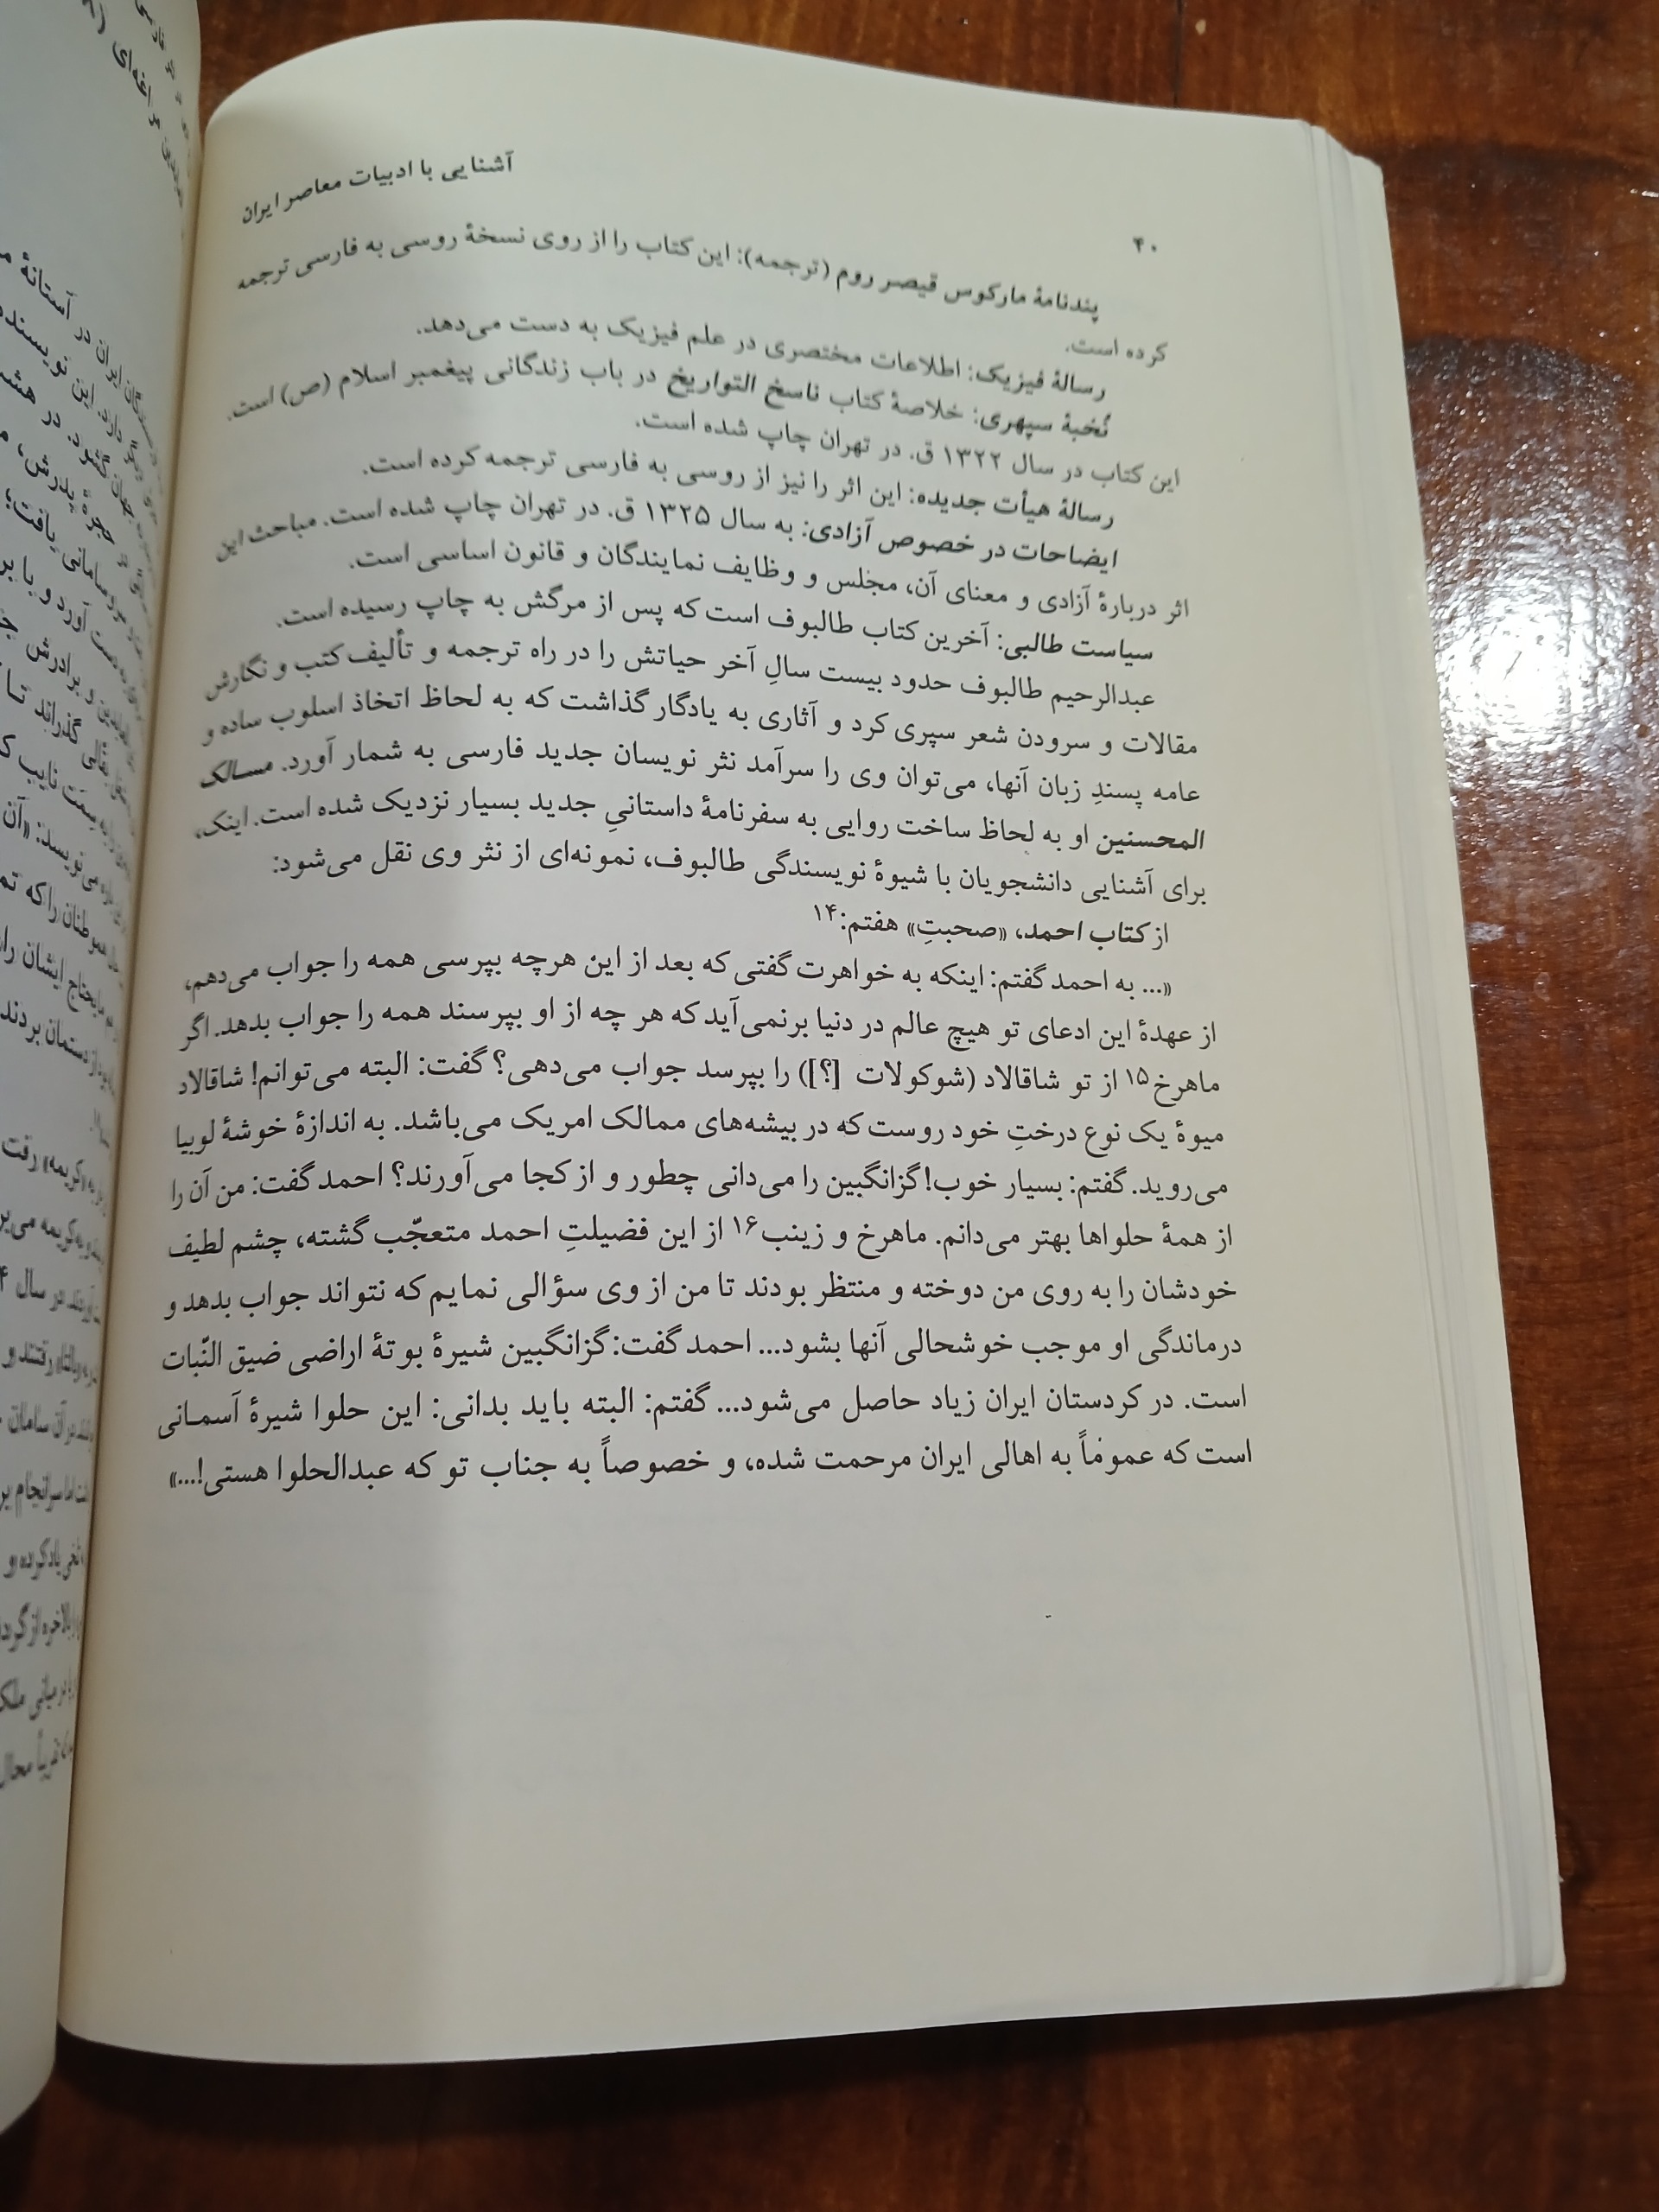 آشنایی با ادبیات معاصر ایران
۴۰
پندنامهٔ مارکوس قیصر روم (ترجمه): این کتاب را از روی نسخهٔ روسی به فارسی ترجمه
کرده است.
رسالهٔ فیزیک: اطلاعات مختصری در علم فیزیک به دست می‌دهد.
نُخبهٔ سپهری: خلاصهٔ کتاب ناسخ التواریخ در باب زندگانی پیغمبر اسلام (ص) است.
این کتاب در سال ۱۳۲۲ ق. در تهران چاپ شده است.
رسالهٔ هیأت جدیده: این اثر را نیز از روسی به فارسی ترجمه کرده است.
ایضاحات در خصوص آزادی: به سال ۱۳۲۵ ق. در تهران چاپ شده است. مباحث این
اثر دربارهٔ آزادی و معنای آن، مجلس و وظایف نمایندگان و قانون اساسی است.
سیاست طالبی: آخرین کتاب طالبوف است که پس از مرگش به چاپ رسیده است.
عبدالرحیم طالبوف حدود بیست سالِ آخر حیاتش را در راه ترجمه و تألیف کتب و نگارش
مقالات و سرودن شعر سپری کرد و آثاری به یادگار گذاشت که به لحاظ اتخاذ اسلوب ساده و
عامه پسندِ زبان آنها، می‌توان وی را سرآمد نثر نویسان جدید فارسی به شمار آورد. مسالک
المحسنین او به لحاظ ساخت روایی به سفرنامهٔ داستانیِ جدید بسیار نزدیک شده است. اینک،
برای آشنایی دانشجویان با شیوهٔ نویسندگی طالبوف، نمونه‌ای از نثر وی نقل می‌شود:
از کتاب احمد، «صحبتِ» هفتم:۱۴
«... به احمد گفتم: اینکه به خواهرت گفتی که بعد از این هرچه بپرسی همه را جواب می‌دهم،
از عهدهٔ این ادعای تو هیچ عالم در دنیا برنمی‌آید که هر چه از او بپرسند همه را جواب بدهد. اگر
ماهرخ۱۵ از تو شاقالاد (شوکولات [؟]) را بپرسد جواب می‌دهی؟ گفت: البته می‌توانم! شاقالاد
میوهٔ یک نوع درختِ خود روست که در بیشه‌های ممالک امریک می‌باشد. به اندازهٔ خوشهٔ لوبیا
می‌روید. گفتم: بسیار خوب! گزانگبین را می‌دانی چطور و از کجا می‌آورند؟ احمد گفت: من آن را
از همهٔ حلواها بهتر می‌دانم. ماهرخ و زینب۱۶ از این فضیلتِ احمد متعجّب گشته، چشم لطیف
خودشان را به روی من دوخته و منتظر بودند تا من از وی سؤالی نمایم که نتواند جواب بدهد و
درماندگی او موجب خوشحالی آنها بشود... احمد گفت: گزانگبین شیرهٔ بوتهٔ اراضی ضیق النّبات
است. در کردستان ایران زیاد حاصل می‌شود... گفتم: البته باید بدانی: این حلوا شیرهٔ آسمانی
است که عموماً به اهالی ایران مرحمت شده، و خصوصاً به جناب تو که عبدالحلوا هستی!...»